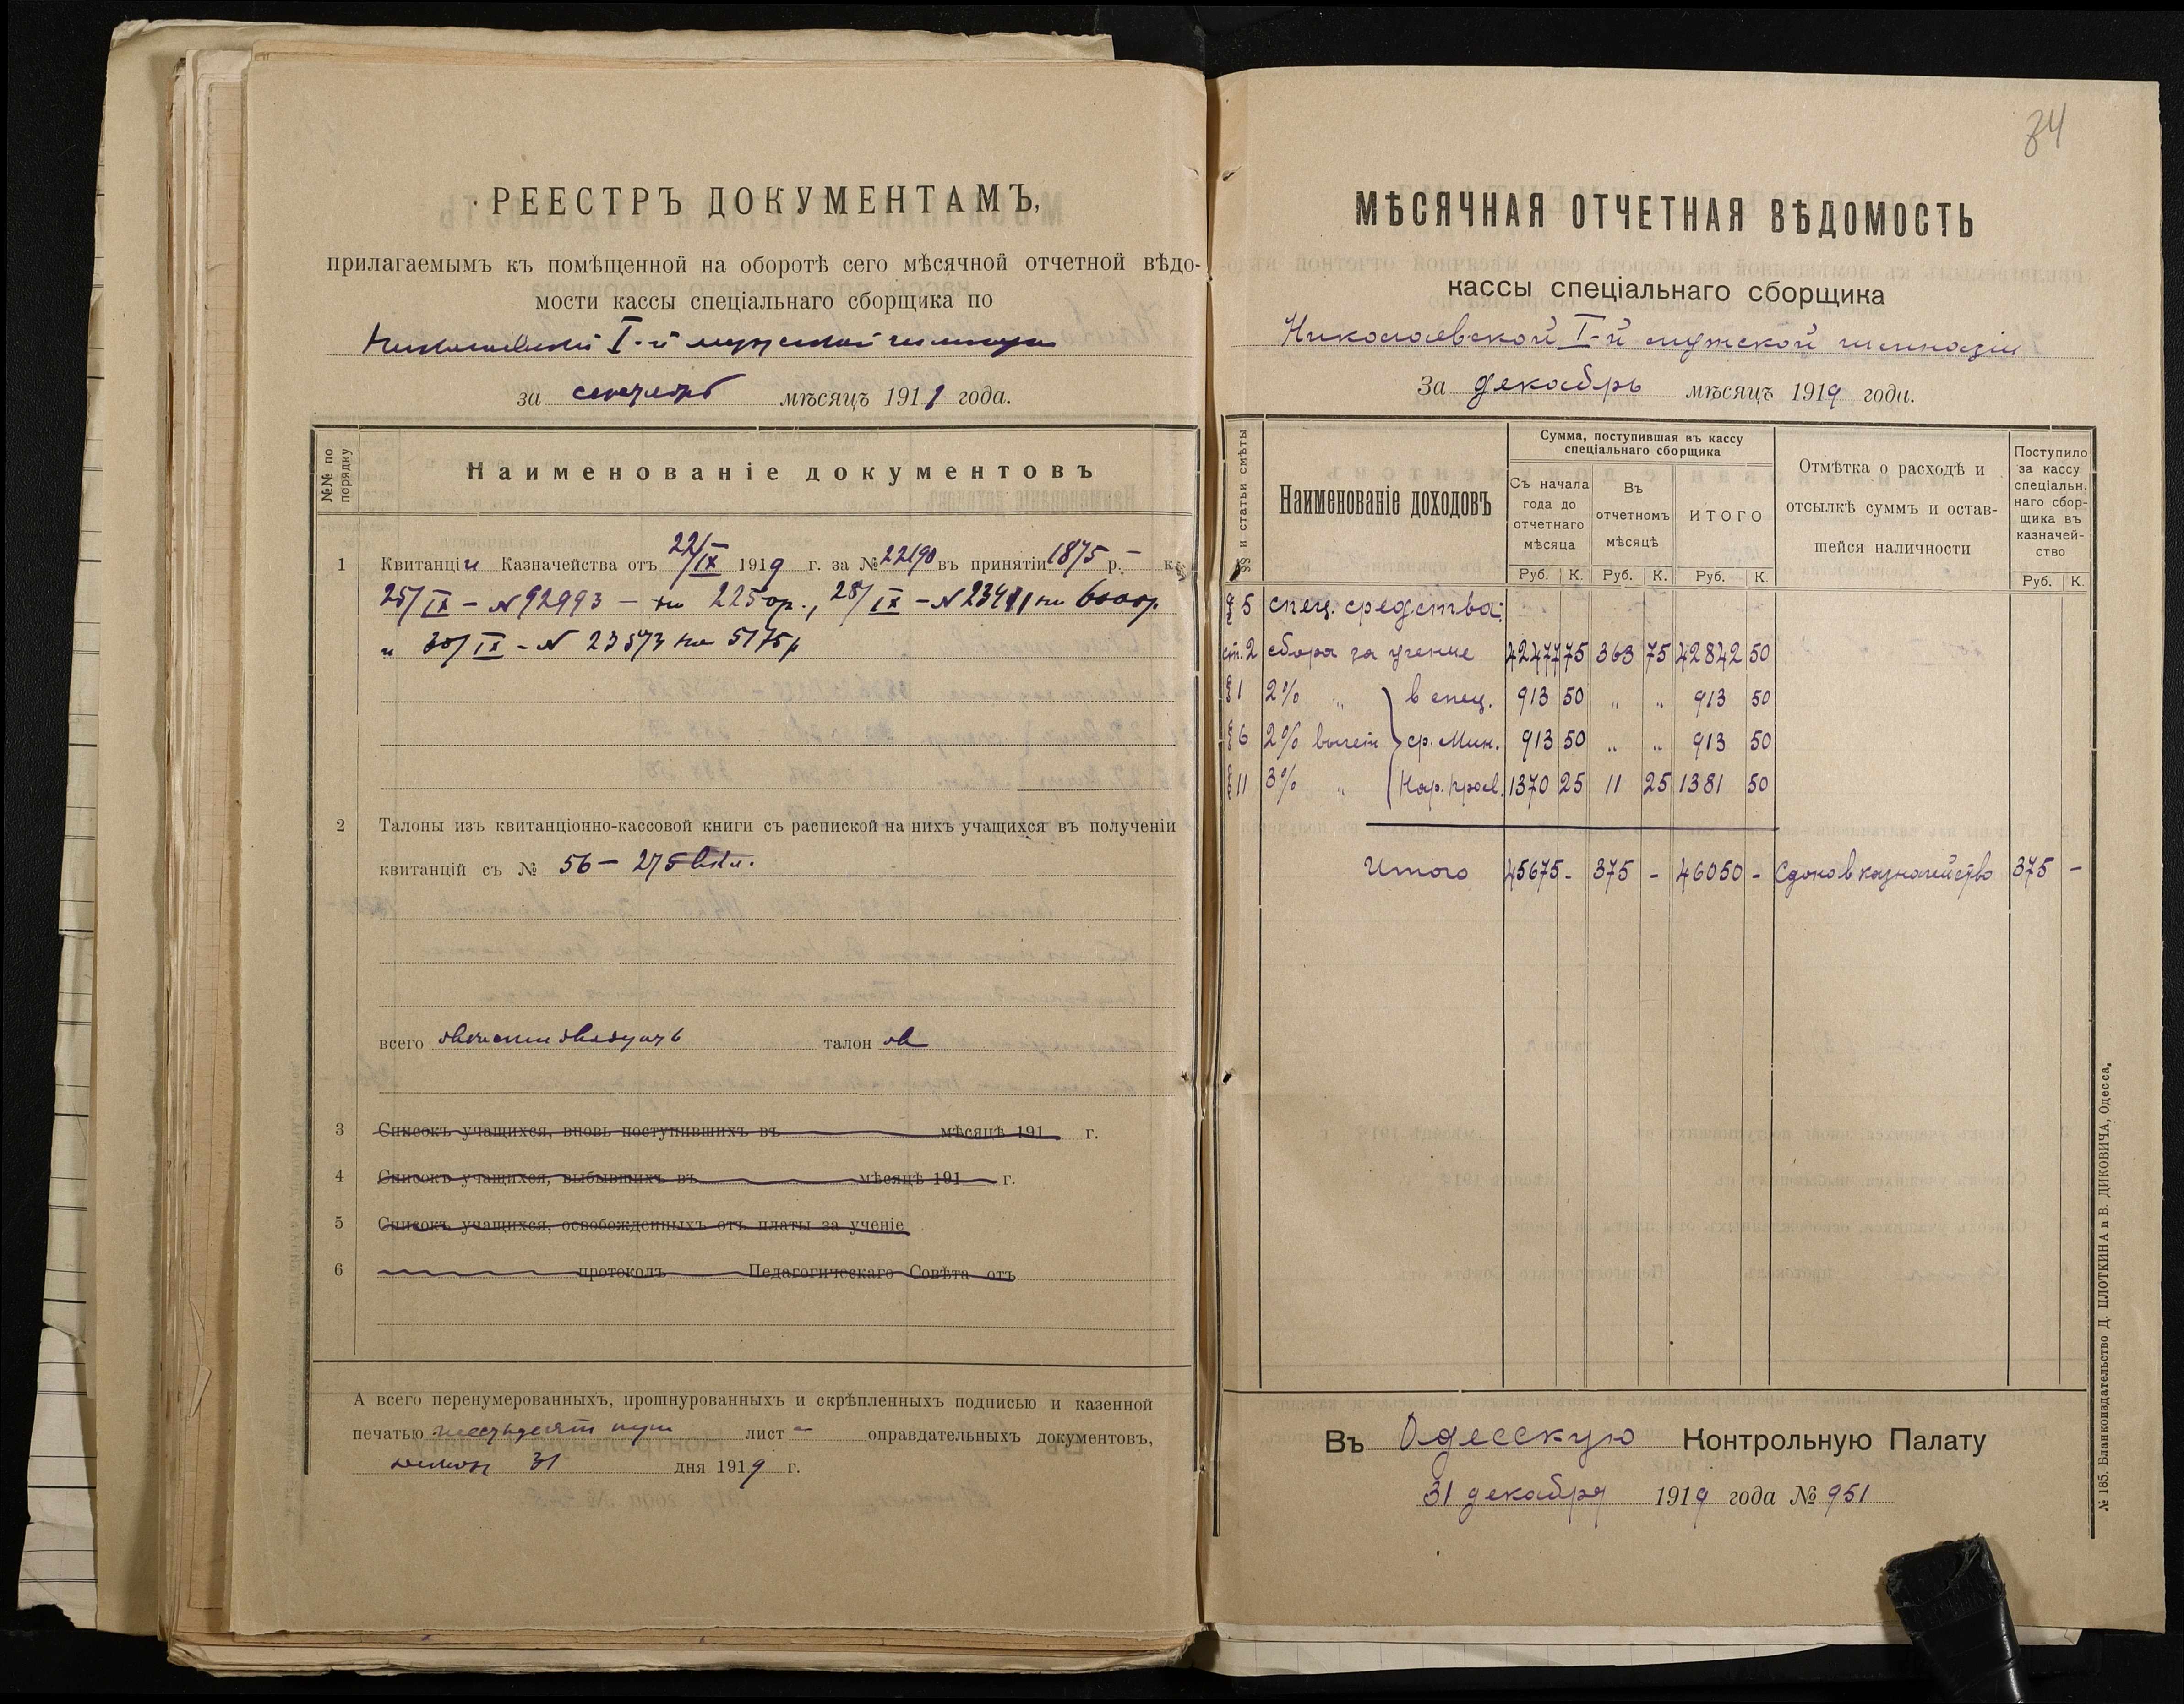 РЕЕСТРЪ ДОКУМЕНТАМЪ,
прилагаемымъ къ помѣщенной на оборотѣ сего мѣсячной отчетной вѣдо-
мости кассы спеціальнаго сборщика по
Николаевской I-й мужской гимназіи
за сентябрь мѣсяцъ 1919 года.
№№ по порядку
Наименованіе документовъ
1 Квитанціи Казначейства отъ 22/IX 1919 г. за № 22190 въ принятіи 1875 р. – к.
25/IX – № 92993 – на 2250р., 28/IX – № 23411 на 6000р.
и 30/IX – № 23573 на 5175р
2 Талоны изъ квитанціонно-кассовой книги съ распиской на нихъ учащихся въ полученіи
квитанцій съ № 56 – 275 вкл.
всего двѣсти двадцать талон ов
3 Списокъ учащихся, вновь поступившихъ въ мѣсяцѣ 191 г.
4 Списокъ учащихся, выбывшихъ въ мѣсяцѣ 191 г.
5 Списокъ учащихся, освобожденныхъ отъ платы за ученіе
6 протоколъ Педагогическаго Совѣта отъ
А всего перенумерованныхъ, прошнурованныхъ и скрѣпленныхъ подписью и казенной
печатью лист оправдательныхъ документовъ,
31 дня 1919 г.
84
МѢСЯЧНАЯ ОТЧЕТНАЯ ВѢДОМОСТЬ
кассы спеціальнаго сборщика
Николаевской I-й мужской гимназіи
За декабрь мѣсяцъ 1919 года.
§§ и статьи смѣты
Наименованіе доходовъ
Сумма, поступившая въ кассу спеціальнаго сборщика
Съ начала года до отчетнаго мѣсяца
Въ отчетномъ мѣсяцѣ
ИТОГО
Отмѣтка о расходѣ и отсылкѣ суммъ и остав-шейся наличности
Поступило за кассу спеціальн-наго сбор-щика въ казначей-ство
Руб. К. Руб. К. Руб. К. Руб. К.
§ 5 спец. средства:
ст. 2 сбора за учение 42477 75 363 75 42842 50
§ 1 2% " в спец. 913 50 " " 913 50
§ 6 2% вычет. ср. Мин. 913 50 " " 913 50
§ 11 3% " Нар. просв. 1370 25 11 25 1381 50
Итого 45675 - 375 - 46050 - Сдано в казначейство 375 -
Въ Одесскую Контрольную Палату
31 декабря 1919 года № 951
№ 185. Бланкоиздательство Д. ПЛОТКИНА и В. ДИКОВИЧА, Одесса.